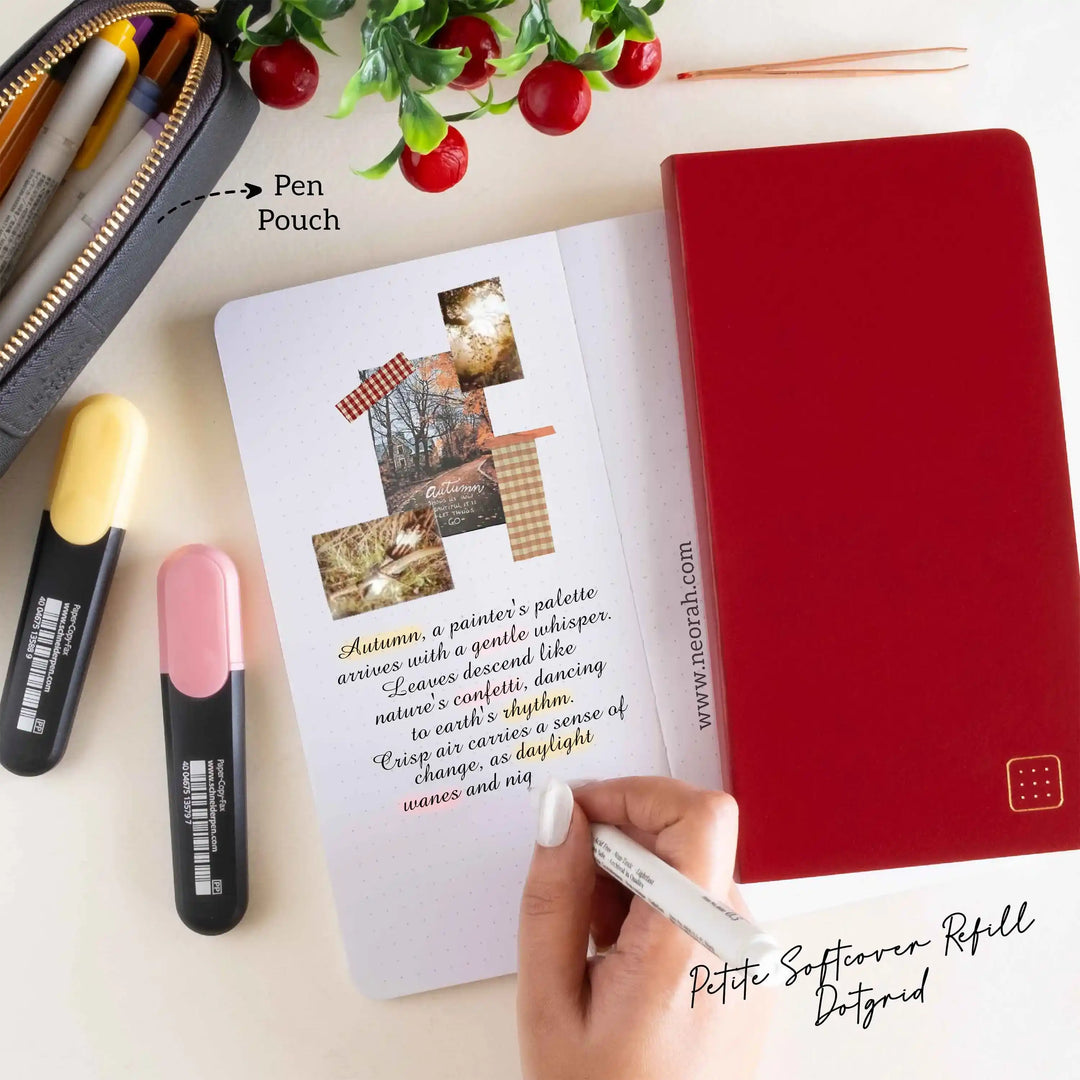 Pen
Pouch
autumn
LET THINGS
-GO-
Autumn, a painter's palette
arrives with a gentle whisper.
Leaves descend like
nature's confetti, dancing
to earth's rhythm.
Crisp air carries a sense of
change, as daylight
wanes and nig
www.neorah.com
Paper-Copy-Fax
www.schneiderpen.com
40 04675 13588 9
PP
Paper-Copy-Fax
www.schneiderpen.com
40 04675 13579 7
PP
Acid Free · Non-Toxic · Lightfast
Archival Quality
Petite Softcover Refill
Dotgrid